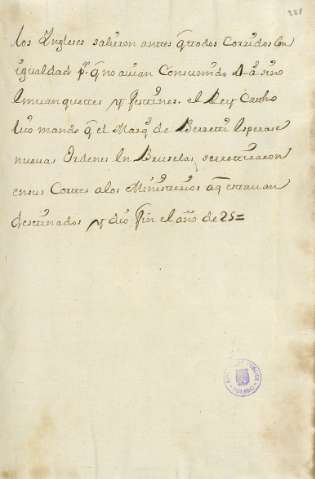 los Yngleses salieron antes q̃ todos Corridos Con
igualdad p.r q.e no avian Consumido
enuanquetes y festines. el Rey Catho
lico mando q̃ el Marq.s de Bereti esperase
nuevas Ordenes en Bruselas, se restituieron
en sus Cortes a los Ministerios a q̃ estavan
destinados y dio fin el año de 25=